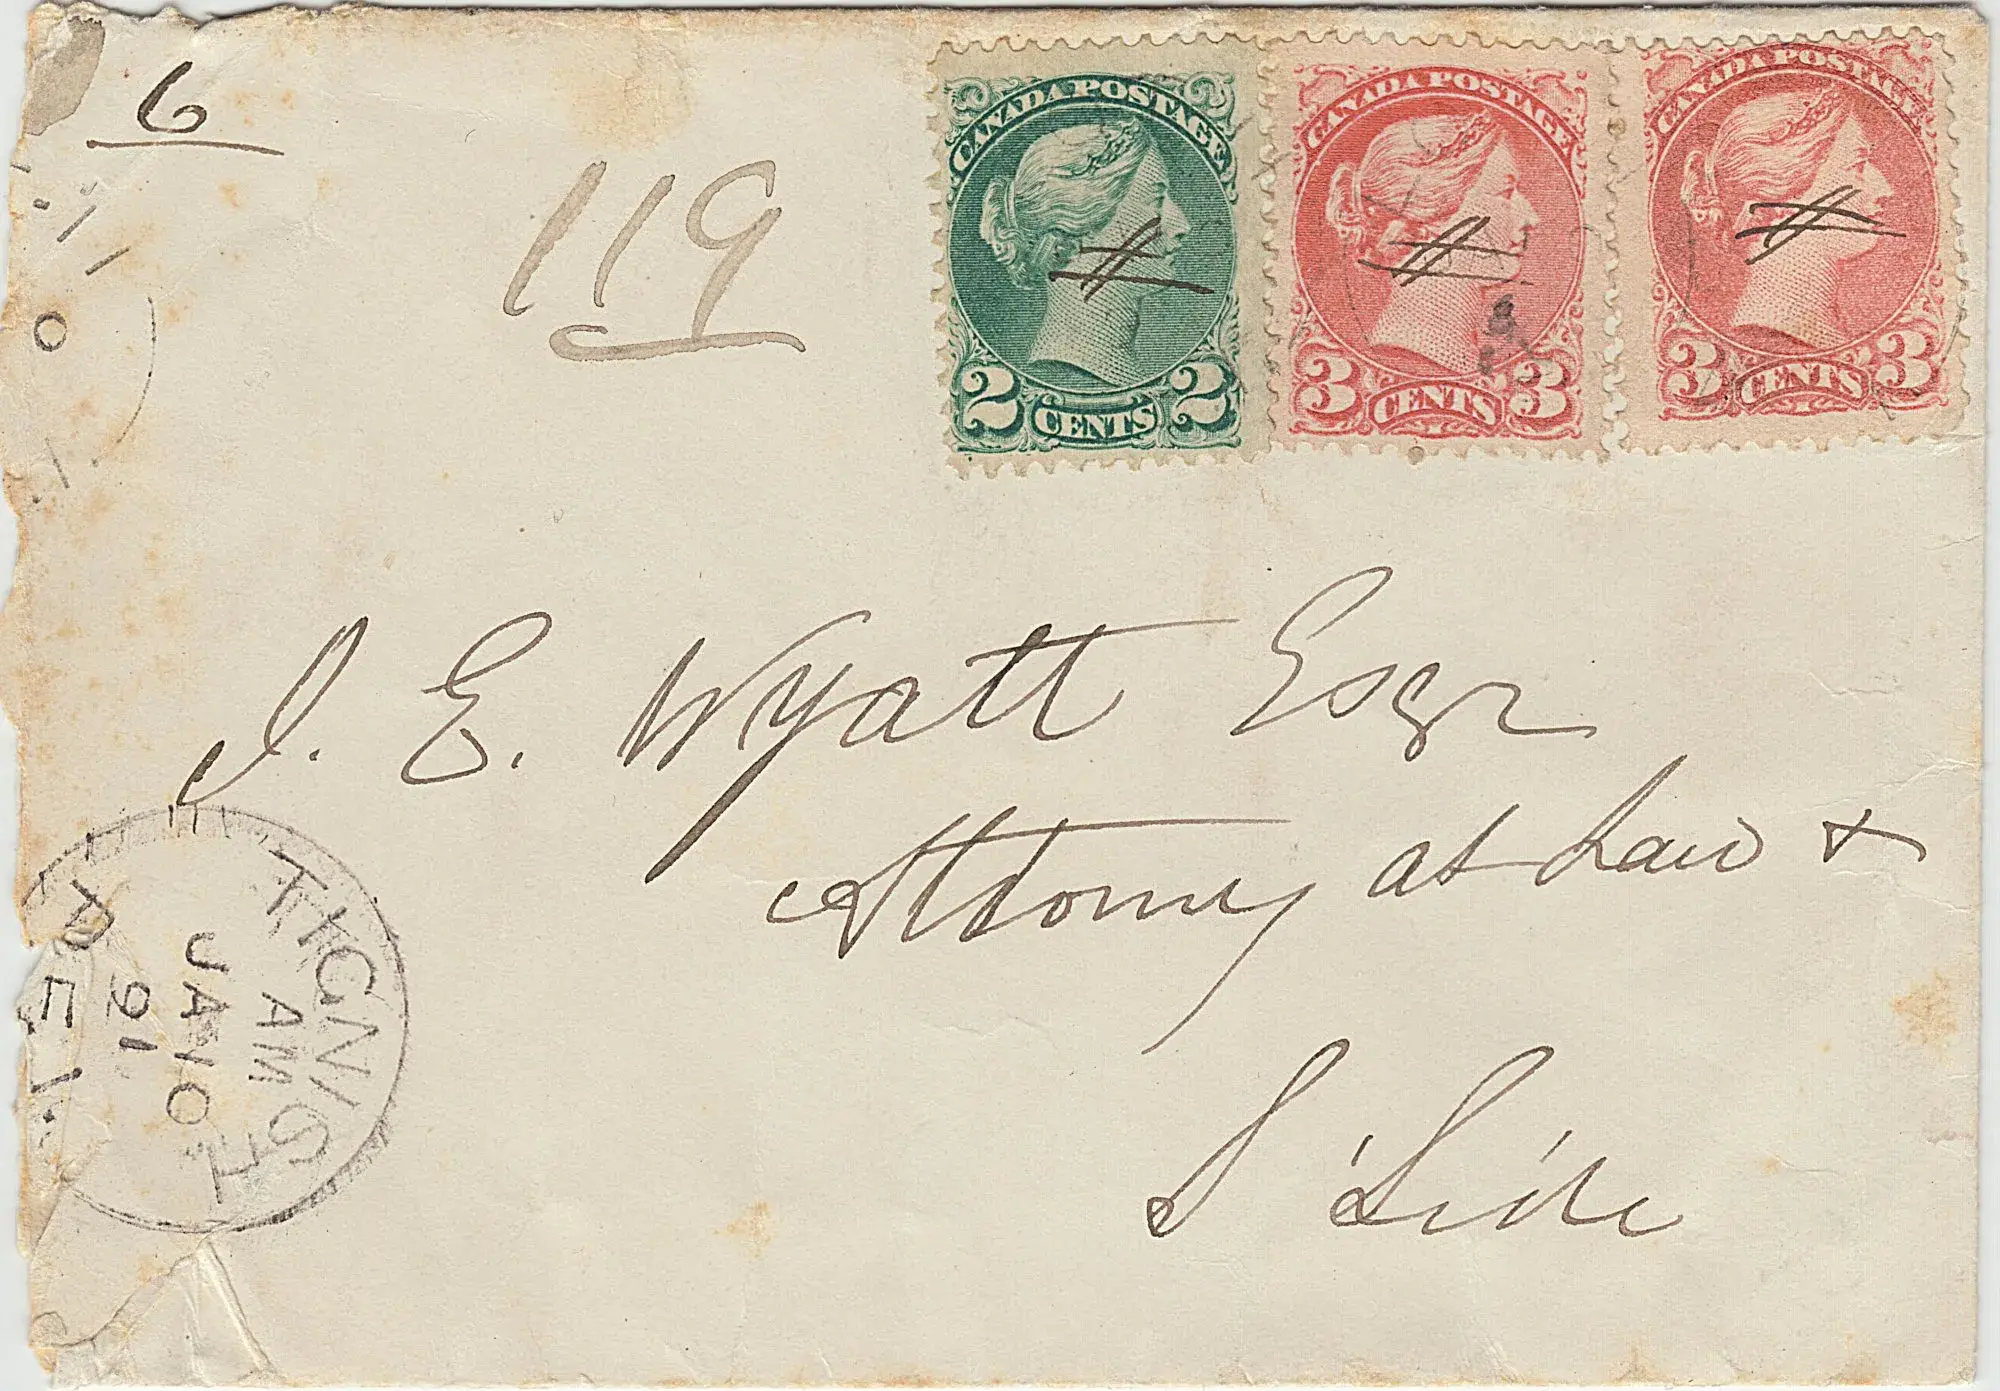 6
119
CANADA POSTAGE
2 CENTS 2
CANADA POSTAGE
3 CENTS 3
CANADA POSTAGE
3 CENTS 3
J. E. Wyatt Esqr
Attorney at Law &
S'Side
TIGNISH
AM
JA 10
91
P.E.I.